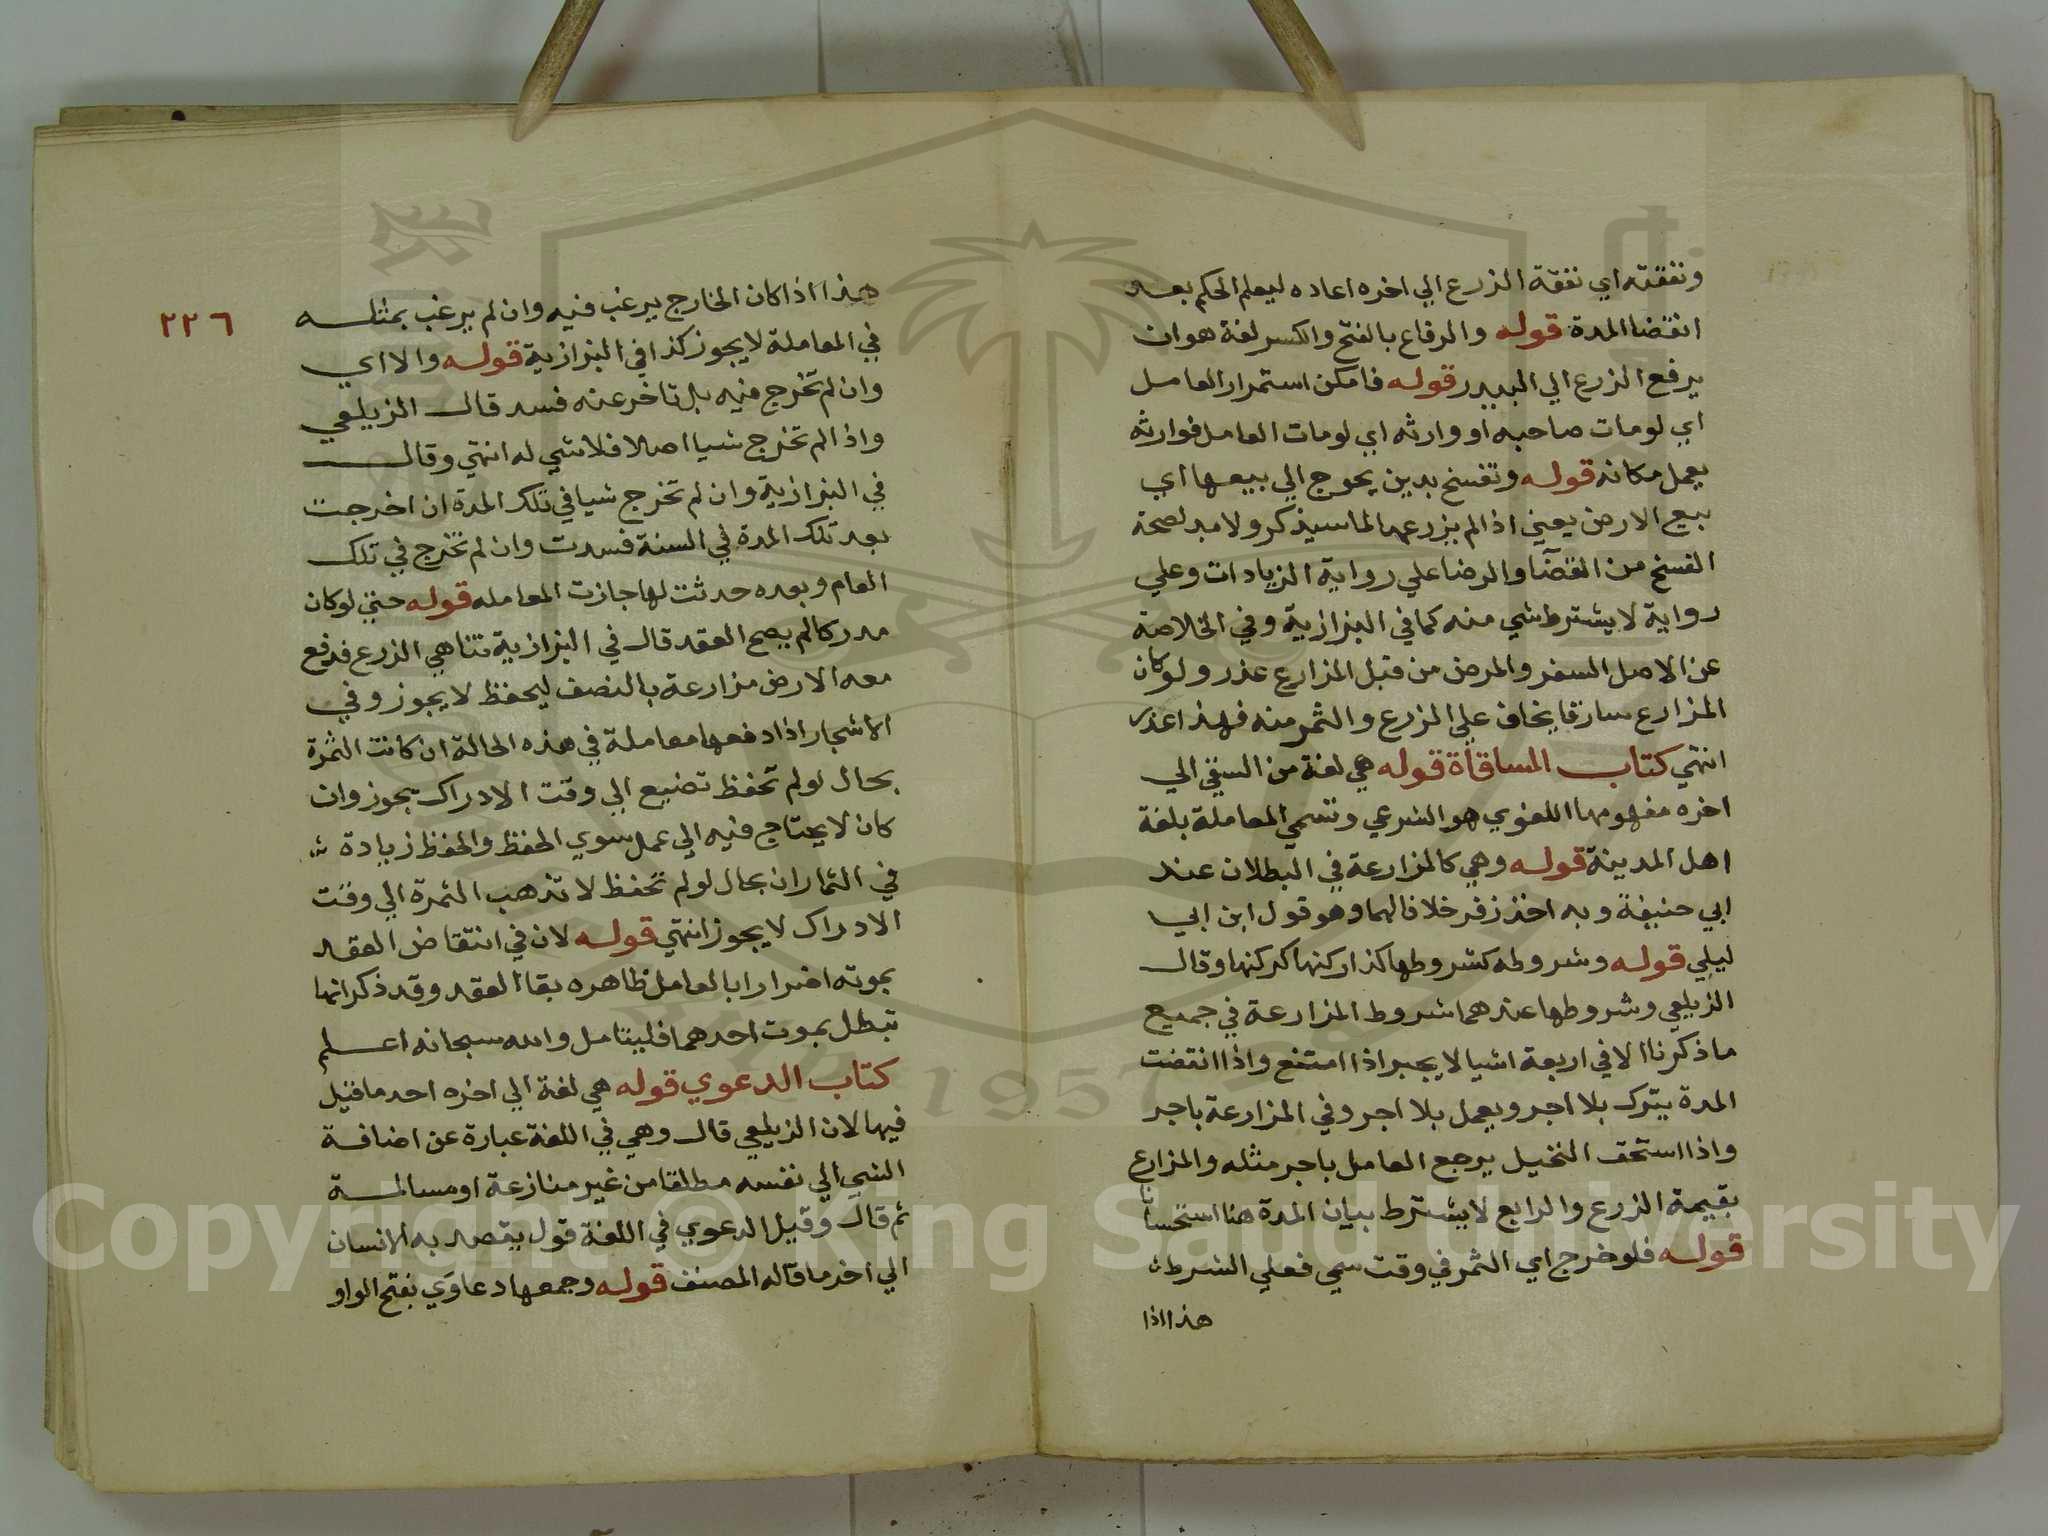 ونفقته اي نفقة الزرع الي اخره اعاده ليعلم الحكم بعد
انقضا المدة قوله والرفاع بالفتح والكسر لغة هو ان
يرفع الزرع الي البيدر قوله فامكن استمرار العامل
اي لو مات صاحبه او وارثه اي لو مات العامل فوارثه
يعمل مكانه قوله وتفسخ بدين يحوج الي بيعها اي
بيع الارض يعني اذا لم يزرعها لما سيذكر ولا بد لصحة
الفسخ من القضآ او الرضا علي رواية الزيادات وعلي
رواية لا يشترط شي منه كما في البزازية وفي الخلاصة
عن الاصل السفر والمرض من قبل المزارع عذر ولو كان
المزارع سارقا يخاف علي الزرع والثمر منه فهذا عذر
انتهي كتاب المساقاة قوله هي لغة من السقي الي
اخره مفهومها اللغوي هو الشرعي وتسمي المعاملة بلغة
اهل المدينة قوله وهي كالمزارعة في البطلان عند
ابي حنيفة وبه اخذ زفر خلافا لهما وهو قول ابن ابي
ليلي قوله وشروطه كشروطها كذا ركنها كركنها وقال
الزيلعي وشروطها عندهما شروط المزارعة في جميع
ما ذكرنا الا في اربعة اشيا لا يجبر اذا امتنع واذا انقضت
المدة يترك بلا اجر ويعمل بلا اجر وفي المزارعة باجر
واذا استحق النخيل يرجع العامل باجر مثله والمزارع
بقيمة الزرع والرابع لا يشترط بيان المدة هنا استحسانا
قوله فلو خرج اي الثمر في وقت سمي فعلي الشرط
هذا اذا
٢٢٦
هذا اذا كان الخارج يرغب فيه وان لم يرغب بمثله
في المعاملة لا يجوز كذا في البزازية قوله والا اي
وان لم تخرج فيه بل تاخر عنه فسد قال الزيلعي
واذا لم تخرج شيا اصلا فلا شي له انتهي وقال
في البزازية وان لم تخرج شيا في تلك المدة ان اخرجت
بعد تلك المدة في السنة فسدت وان لم تخرج في تلك
العام وبعده حدثت لها جازت المعامله قوله حتي لو كان
مدركا لم يصح العقد قال في البزازية تناهي الزرع فدفع
معه الارض مزارعة بالنصف ليحفظ لا يجوز وفي
الاشجار اذا دفعها معاملة في هذه الحالة ان كانت الثمرة
بحال لو لم تحفظ تضيع الي وقت الادراك يجوز وان
كان لا يحتاج فيه الي عمل سوي الحفظ والحفظ زيادة
في الثمار ان بحال لو لم تحفظ لا تذهب الثمرة الي وقت
الادراك لا يجوز انتهي قوله لان في انتقاض العقد
بموته اضرارا بالعامل ظاهره بقا العقد وقد ذكر انها
تبطل بموت احدهما فليتامل والله سبحانه اعلم
كتاب الدعوي قوله هي لغة الي اخره احد ما قيل
فيها لان الزيلعي قال وهي في اللغة عبارة عن اضافة
الشي الي نفسه مطلقا من غير منازعة او مسالمة
ثم قال وقيل الدعوي في اللغة قول يقصد به الانسان
الي اخر ما قاله المصنف قوله وجمعها دعاوَي بفتح الواو
Copyright © King Saud University
1957